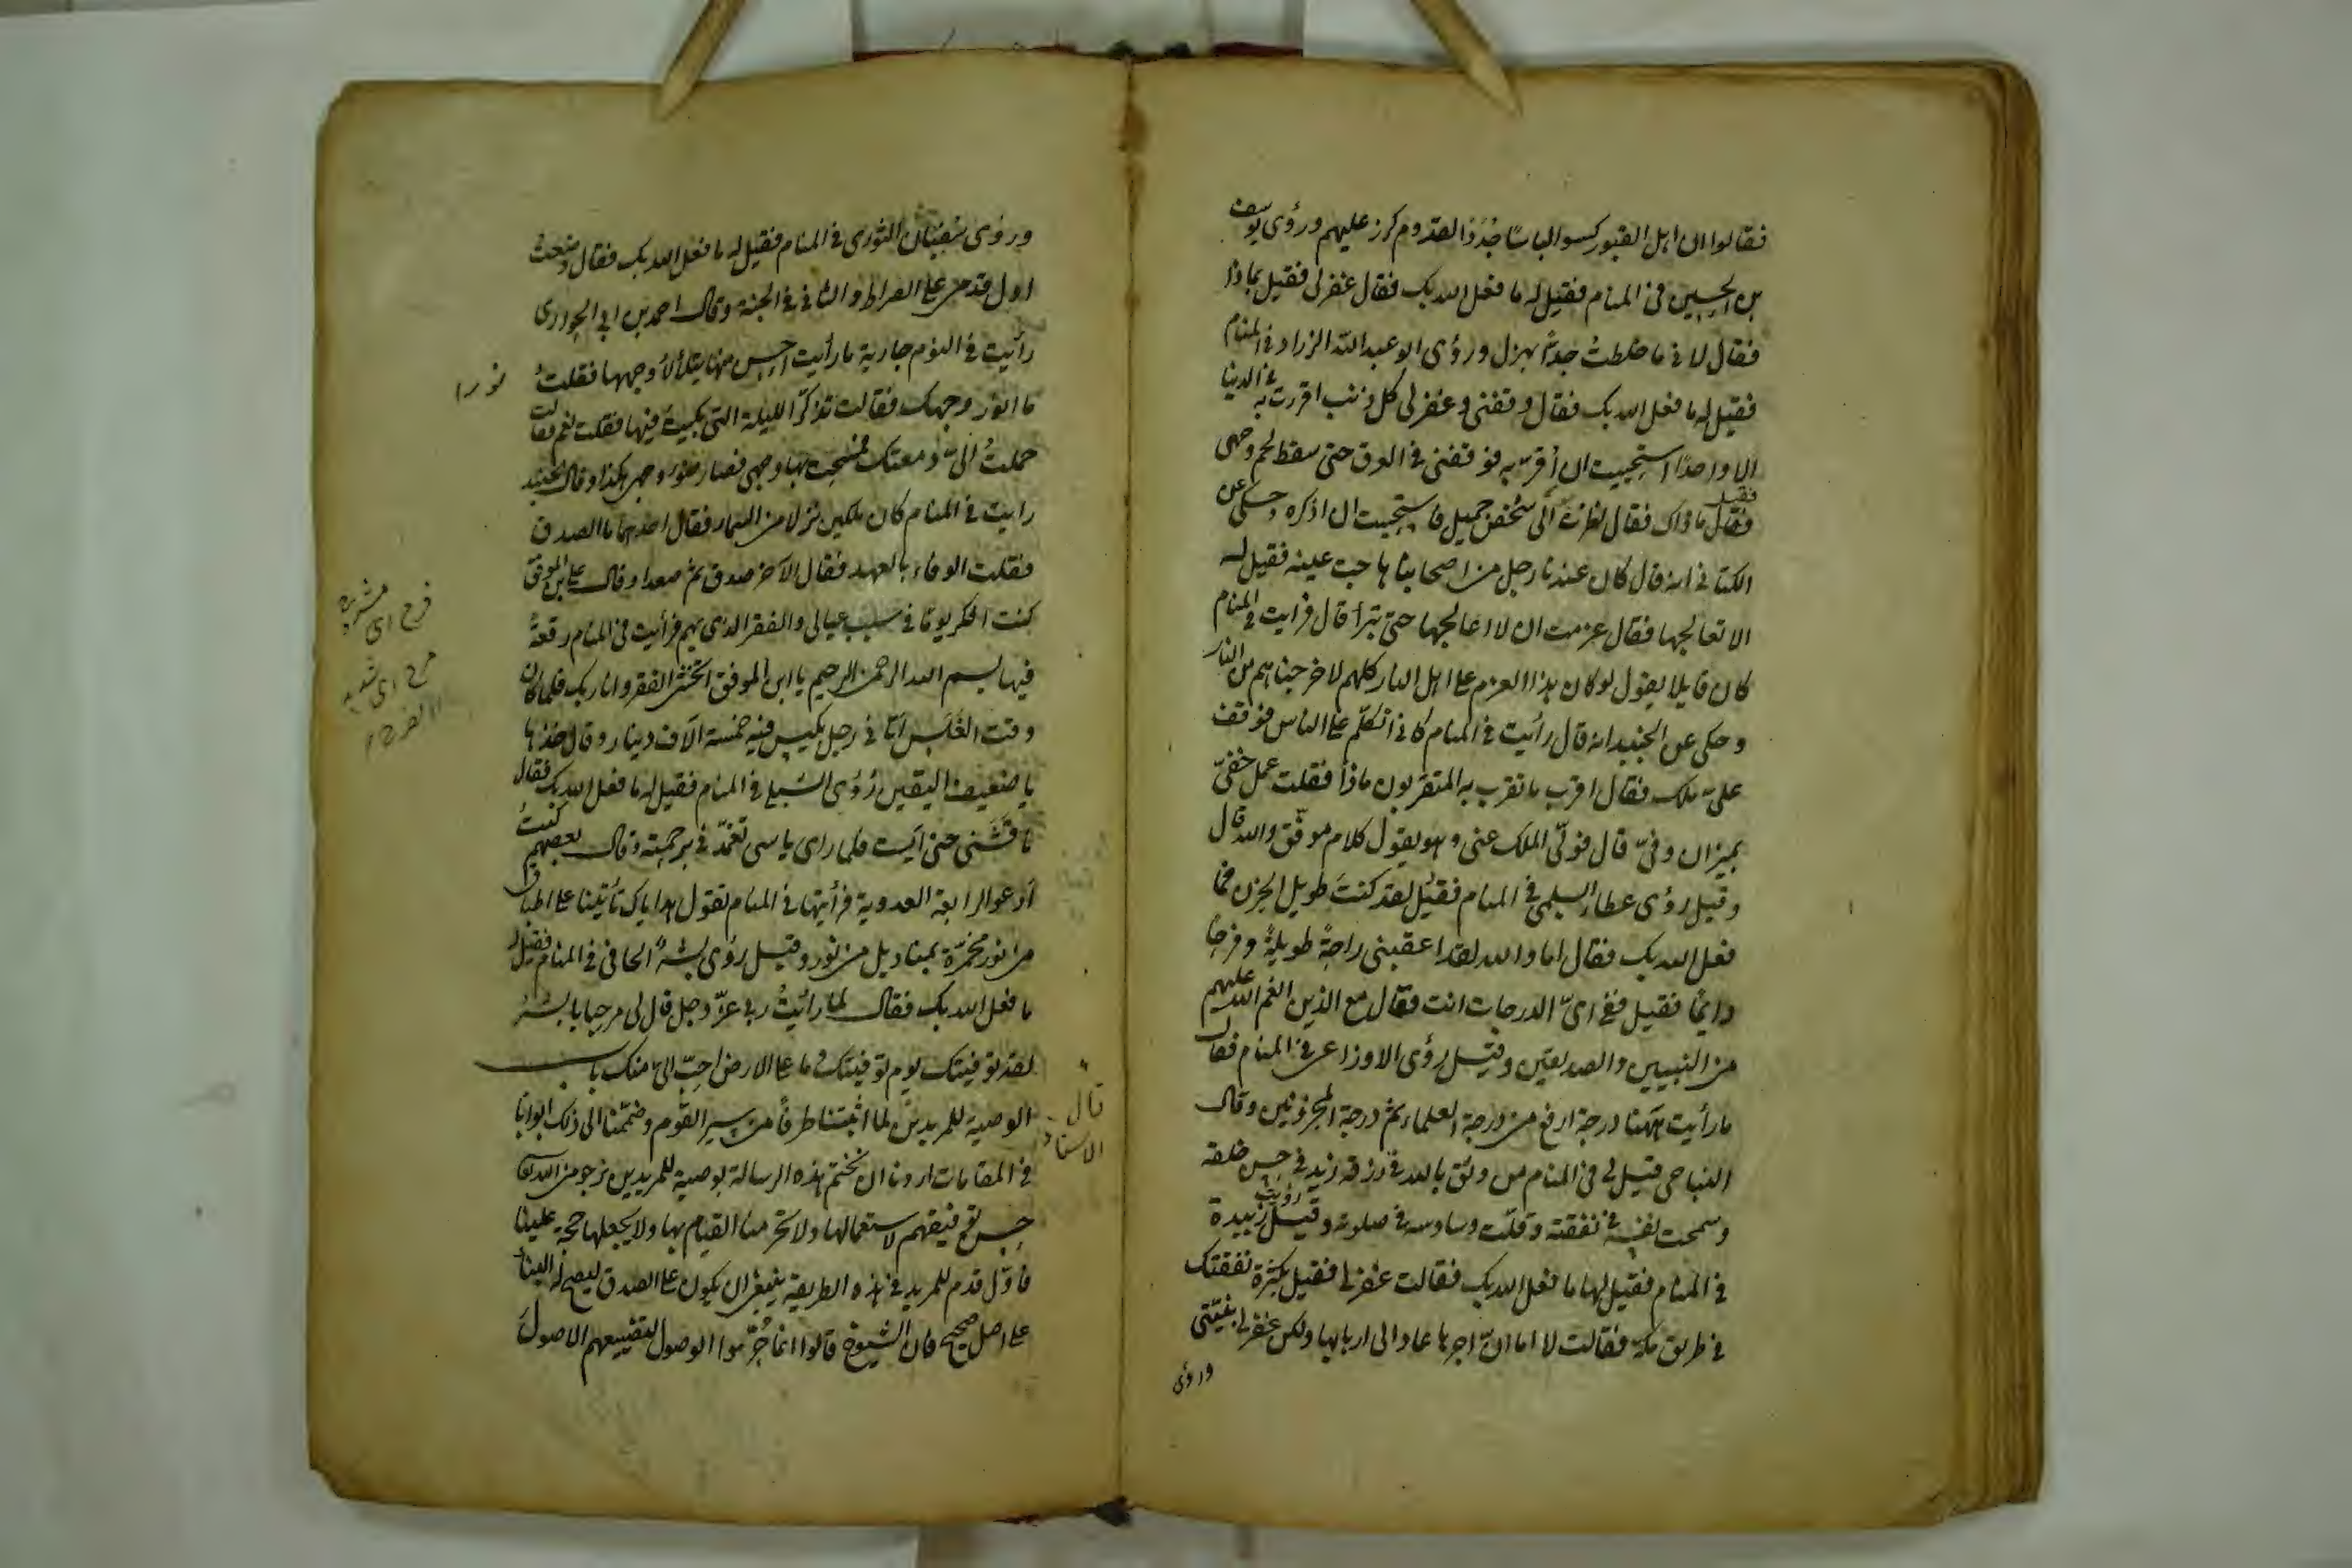 فقالوا ان اهل القبور كسوا لباسًا جُدُدًا لقدوم كرز عليهم ورؤى يوسف
بن الحسين فى المنام فقيل له ما فعل الله بك فقال غفر لى فقيل بماذا
فقال لانى ما خلطتُ جِدًّا بهزل ورؤى ابو عبد الله الزراد فى المنام
فقيل له ما فعل الله بك فقال وقفنى وغفر لى كل ذنب اقررت به فى الدنيا
الا واحدًا استحييت ان أقرّ به فوقفنى فى العرق حتى سقط لحم وجهى
فقيل ما ذاك فقال نظرت الى شخص جميل فاستحييت ان اذكره وحكى عن
الكتانى انه قال كان عندنا رجل من اصحابنا هاجت عينه فقيل له
الا تعالجها فقال عزمت ان لا اعالجها حتى تبرأ قال فرايت فى المنام
كان قايلا يقول لو كان هذا العزم على اهل النار كلهم لاخرجناهم من النار
وحكى عن الجنيد انه قال رأيت فى المنام كانى اتكلّم على الناس فوقف
علىّ ملك فقال اقرب ما تقرب به المتقربون ماذا فقلت عمل خفىّ
بميزان وفىّ قال فولّى الملك عنى وهو يقول كلام موفّق والله قال
وقيل رؤى عطاء السلمى فى المنام فقيل لقد كنتَ طويل الحزن فما
فعل الله بك فقال اما والله لقد اعقبنى راحةً طويلةً وفرحًا
دايمًا فقيل ففى اىّ الدرجات انت فقال مع الذين انعم الله عليهم
من النبيين والصديقين وقيل رؤى الاوزاعى فى المنام فقال
ما رأيت ههنا درجة ارفع من درجة العلماء ثم درجة المحزونين وقال
النباجى قيل لى فى المنام من وثق بالله فى رزقه زيد فى حسن خلقه
وسمحت نفسه فى نفقته وقلّت وساوسه فى صلوته وقيل رؤيت زبيدة
فى المنام فقيل لها ما فعل الله بك فقالت غفر لى فقيل بكثرة نفقتك
فى طريق مكة فقالت لا اما انّ اجرها عاد الى اربابها ولكن غفر لى بنيّتى
ورؤى
ورؤى سفيان الثورى فى المنام فقيل له ما فعل الله بك فقال وضعت
اول قدمى على الصراط والثانى فى الجنة وقال احمد بن ابى الحوارى
رأيت فى النوم جارية ما رأيت احسن منها يتلألأ وجهها فقلتُ
نورا
ما انور وجهك فقالت تذكر الليلة التى بكيت فيها فقلت نعم فقالت
حملتُ الىّ دمعتك فمسحت بها وجهى فصار ضوء وجهى هكذا وقال الجنيد
رايت فى المنام كان ملكين نزلا من السماء فقال احدهما ما الصدق
فقلت الوفاء بالعهد فقال الآخر صدق ثم صعدا وقال على بن الموفق
كنت افكر يومًا فى سبب عيالى والفقر الذى بهم فرأيت فى المنام رقعةً
فيها بسم الله الرحمن الرحيم يا ابن الموفق اتخشى الفقر وانا ربك فلما كان
وقت الغَلَس اتانى رجل بكيس فيه خمسة الآف دينار وقال خذها
يا ضعيف اليقين رُؤى الشبلى فى المنام فقيل له ما فعل الله بك فقال
ناقشنى حتى آيست فلما راى ياسى تغمّدنى برحمته وقال بعضهم كنتُ
ادعو الرابعة العدوية فرأيتها فى المنام تقول هداياك تأتينا على اطباق
من نور مخمّرة بمناديل من نور وقيل رؤى بشرٌ الحافى فى المنام فقيل له
ما فعل الله بك فقال لما رأيتُ ربى عزّ وجل قال لى مرحبا يا بشر
لقد توفيتك يوم توفيتك وما على الارض احبّ الىّ منك باب
الوصية للمريدين لما اثبتنا طرفًا من سير القوم وضممنا الى ذلك ابوابًا
قال الاستاد
فى المقامات اردنا ان نختم هذه الرسالة بوصية للمريدين نرجو من الله تعالى
حسن توفيقهم لاستعمالها ولا تحرمنا القيام بها ولا يجعلها حجة علينا
فاوّل قدم للمريد فى هذه الطريقة ينبغى ان يكون على الصدق ليصح له البناء
على اصل صحيح فان الشيوخ قالوا انما حُرّموا الوصول لتضييعهم الاصول